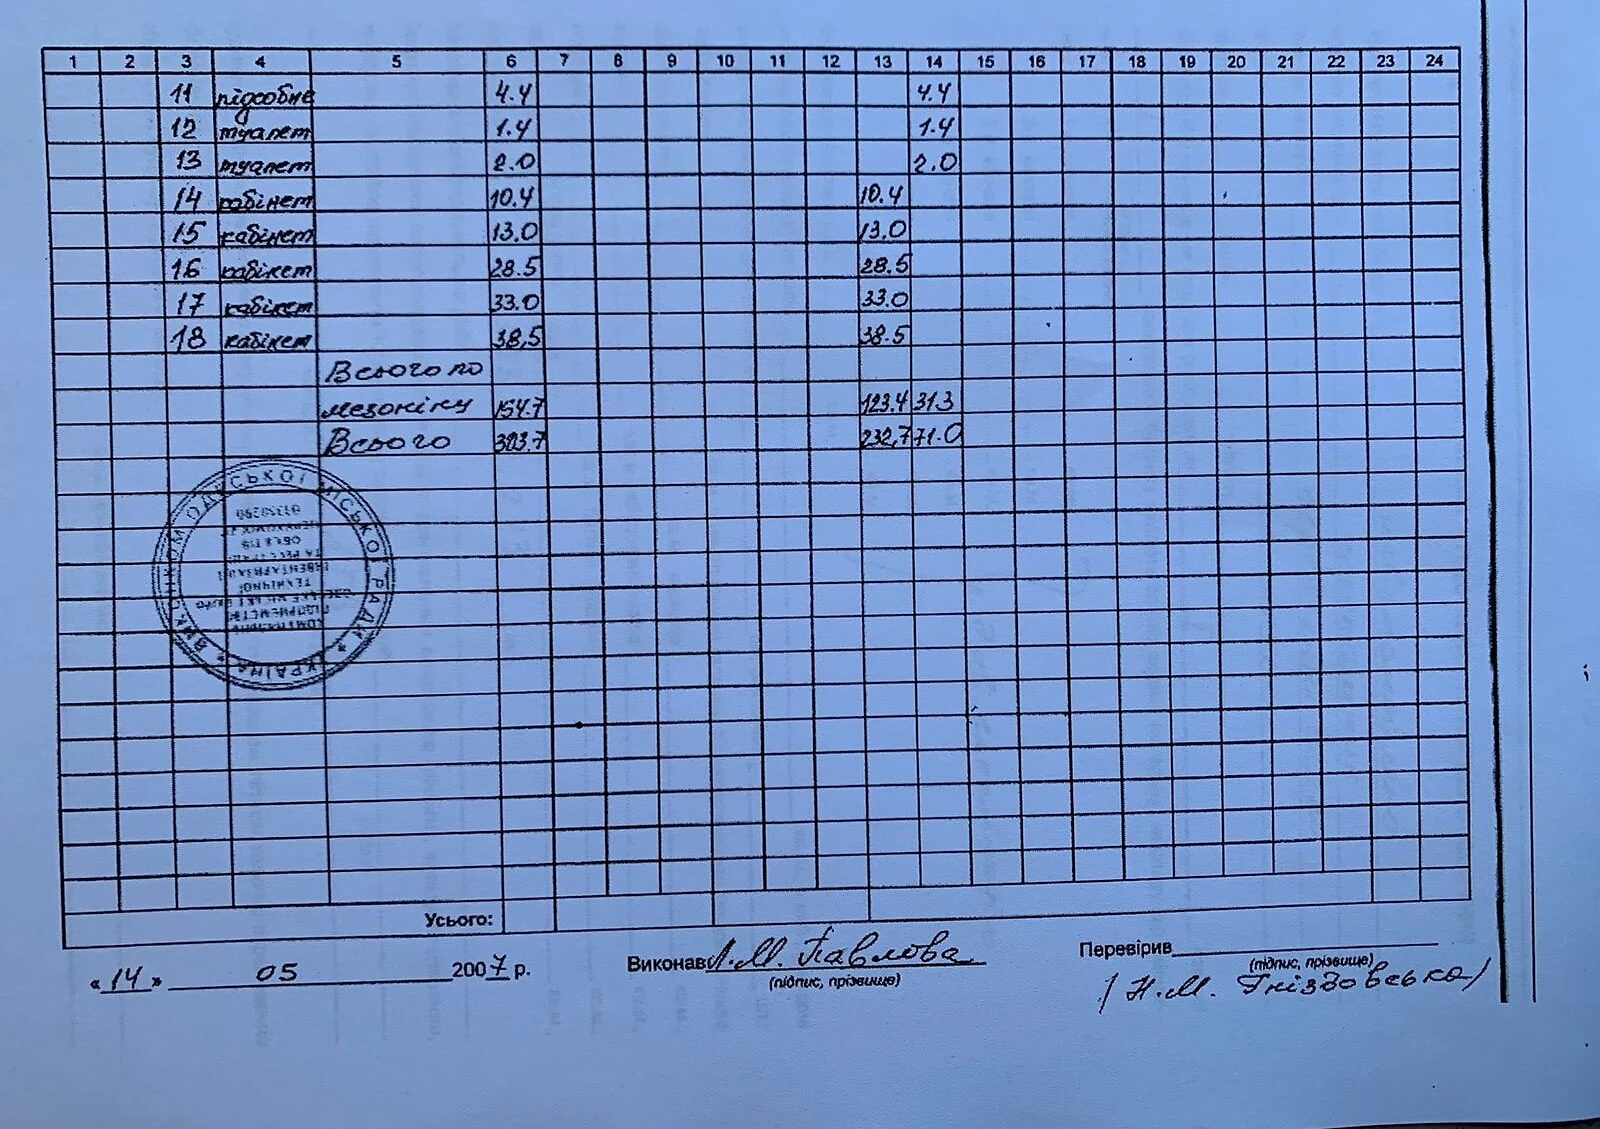 1 2 3 4 5 6 7 8 9 10 11 12 13 14 15 16 17 18 19 20 21 22 23 24
11 підсобне 4.4 4.4
12 туалет 1.4 1.4
13 туалет 2.0 2.0
14 кабінет 10.4 10.4
15 кабінет 13.0 13.0
16 кабінет 28.5 28.5
17 кабінет 33.0 33.0
18 кабінет 38,5 38.5
Всього по
мезоніну 154.7 123.4 31.3
Всього 303.7 232,7 71.0
ВИКОНКОМ ОДЕСЬКОЇ МІСЬКОЇ РАДИ * УКРАЇНА *
КОМУНАЛЬНЕ
ПІДПРИЄМСТВО
ОДЕСЬКЕ МІСЬКЕ БЮРО
ТЕХНІЧНОЇ
ІНВЕНТАРИЗАЦІЇ
ТА РЕЄСТРАЦІЇ
ОБ'ЄКТІВ
НЕРУХОМОСТІ
Усього:
«14» 05 2007 р.
Виконав Л.М. Павлова
(підпис, прізвище)
Перевірив
(підпис, прізвище)
/ Н.М. Гніздовська /